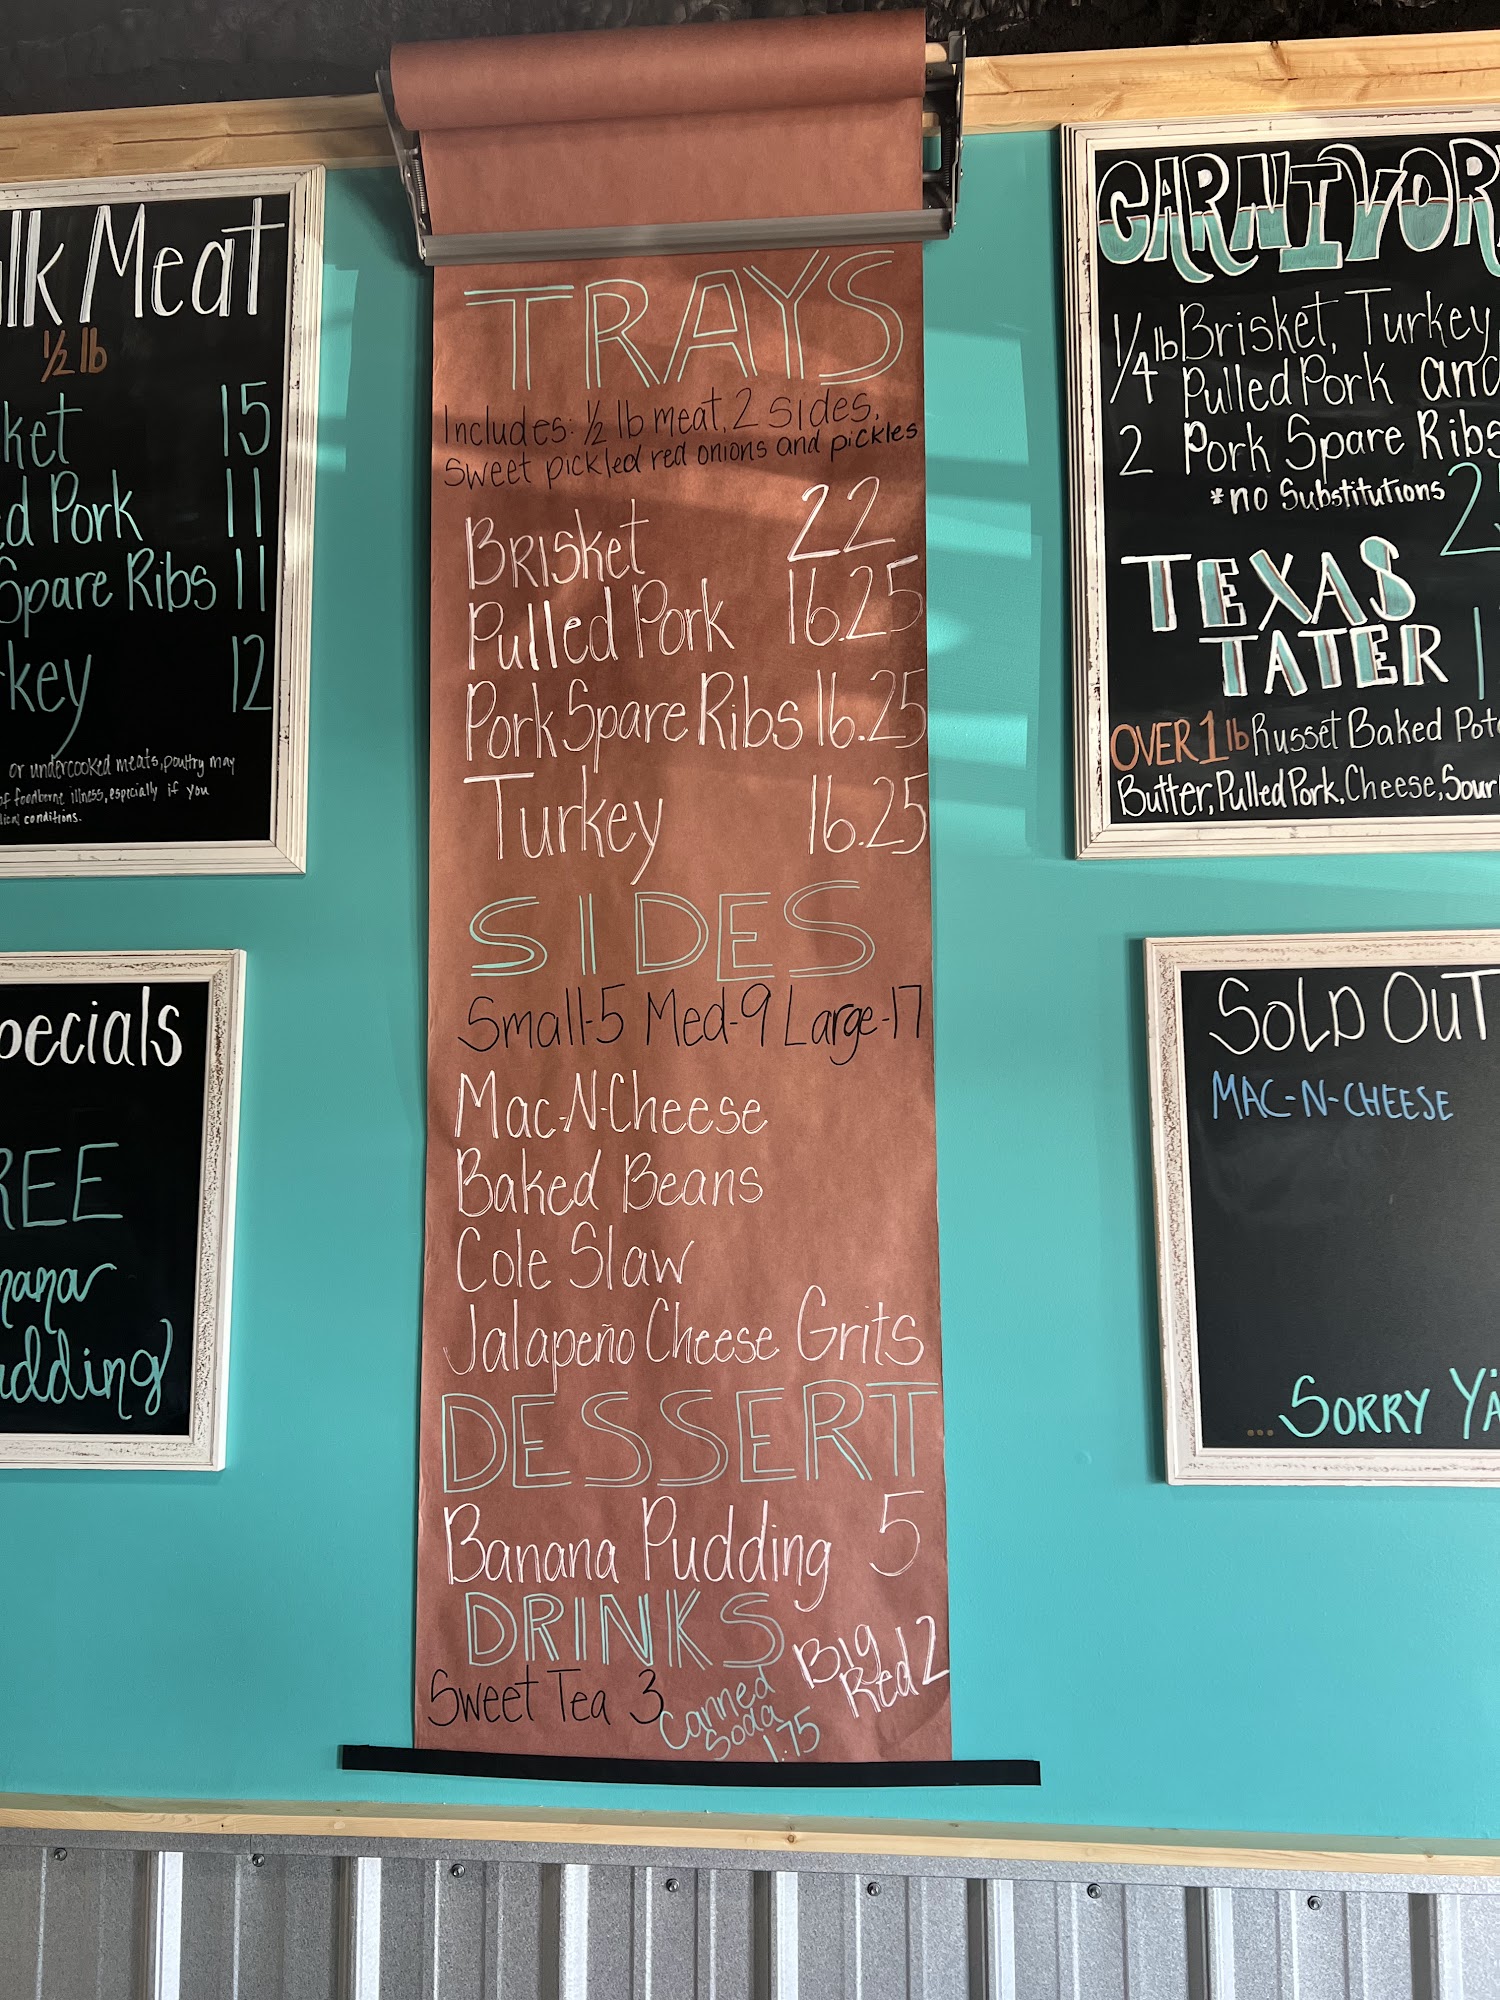 Meat
1/2 lb
15
Pork 11
Spare Ribs 11
12
or undercooked meats, poultry may
of foodborne illness, especially if you
conditions.
TRAYS
Includes: 1/2 lb meat, 2 sides,
Sweet pickled red onions and pickles
Brisket 22
Pulled Pork 16.25
Pork Spare Ribs 16.25
Turkey 16.25
SIDES
Small-5 Med-9 Large-17
Mac-N-Cheese
Baked Beans
Cole Slaw
Jalapeño Cheese Grits
DESSERT
Banana Pudding 5
DRINKS
Sweet Tea 3
Canned
Soda
1.75
Big
Red 2
CARNIVOR
1/4 lb Brisket, Turkey
Pulled Pork and
2 Pork Spare Ribs
*no Substitutions
TEXAS
TATER
OVER 1 lb Russet Baked
Butter, Pulled Pork, Cheese, Sour
SOLD OUT
MAC-N-CHEESE
...SORRY